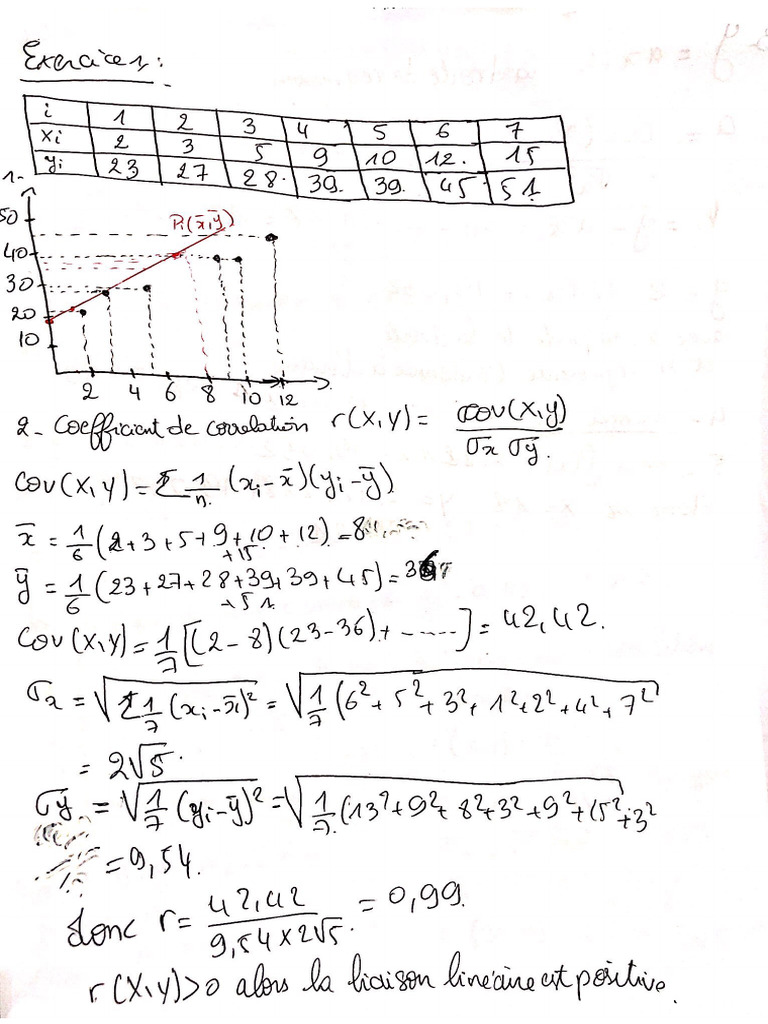 Exercice 1:
i 1 2 3 4 5 6 7
xi 2 3 5 9 10 12. 15
yi 23 27 28. 39. 39. 45. 51.
1-
50
P(x̄,ȳ)
40
30
20
10
2 4 6 8 10 12
2- Coefficient de correlation r(X,y) = cov(X,y) / σx σy.
Cov(X,y) = Σ 1/n (xi - x̄)(yi - ȳ)
x̄ = 1/6 (2+3+5+9+10+12) = 8
+15
ȳ = 1/6 (23+27+28+39+39+45) = 36
+51
Cov(X,y) = 1/7 [(2-8)(23-36)+ ------] = 42,42.
σx = √(Σ 1/7 (xi - x̄)²) = √(1/7 (6²+5²+3²+1²+2²+4²+7²
= 2√5.
σy = √(1/7 (yi - ȳ)²) = √(1/7 (13²+9²+8²+3²+9²+15²+3²
= 9,54.
donc r = 42,42 / 9,54×2√5. = 0,99.
r(X,y)>0 alors la liaison linéaire est positive.